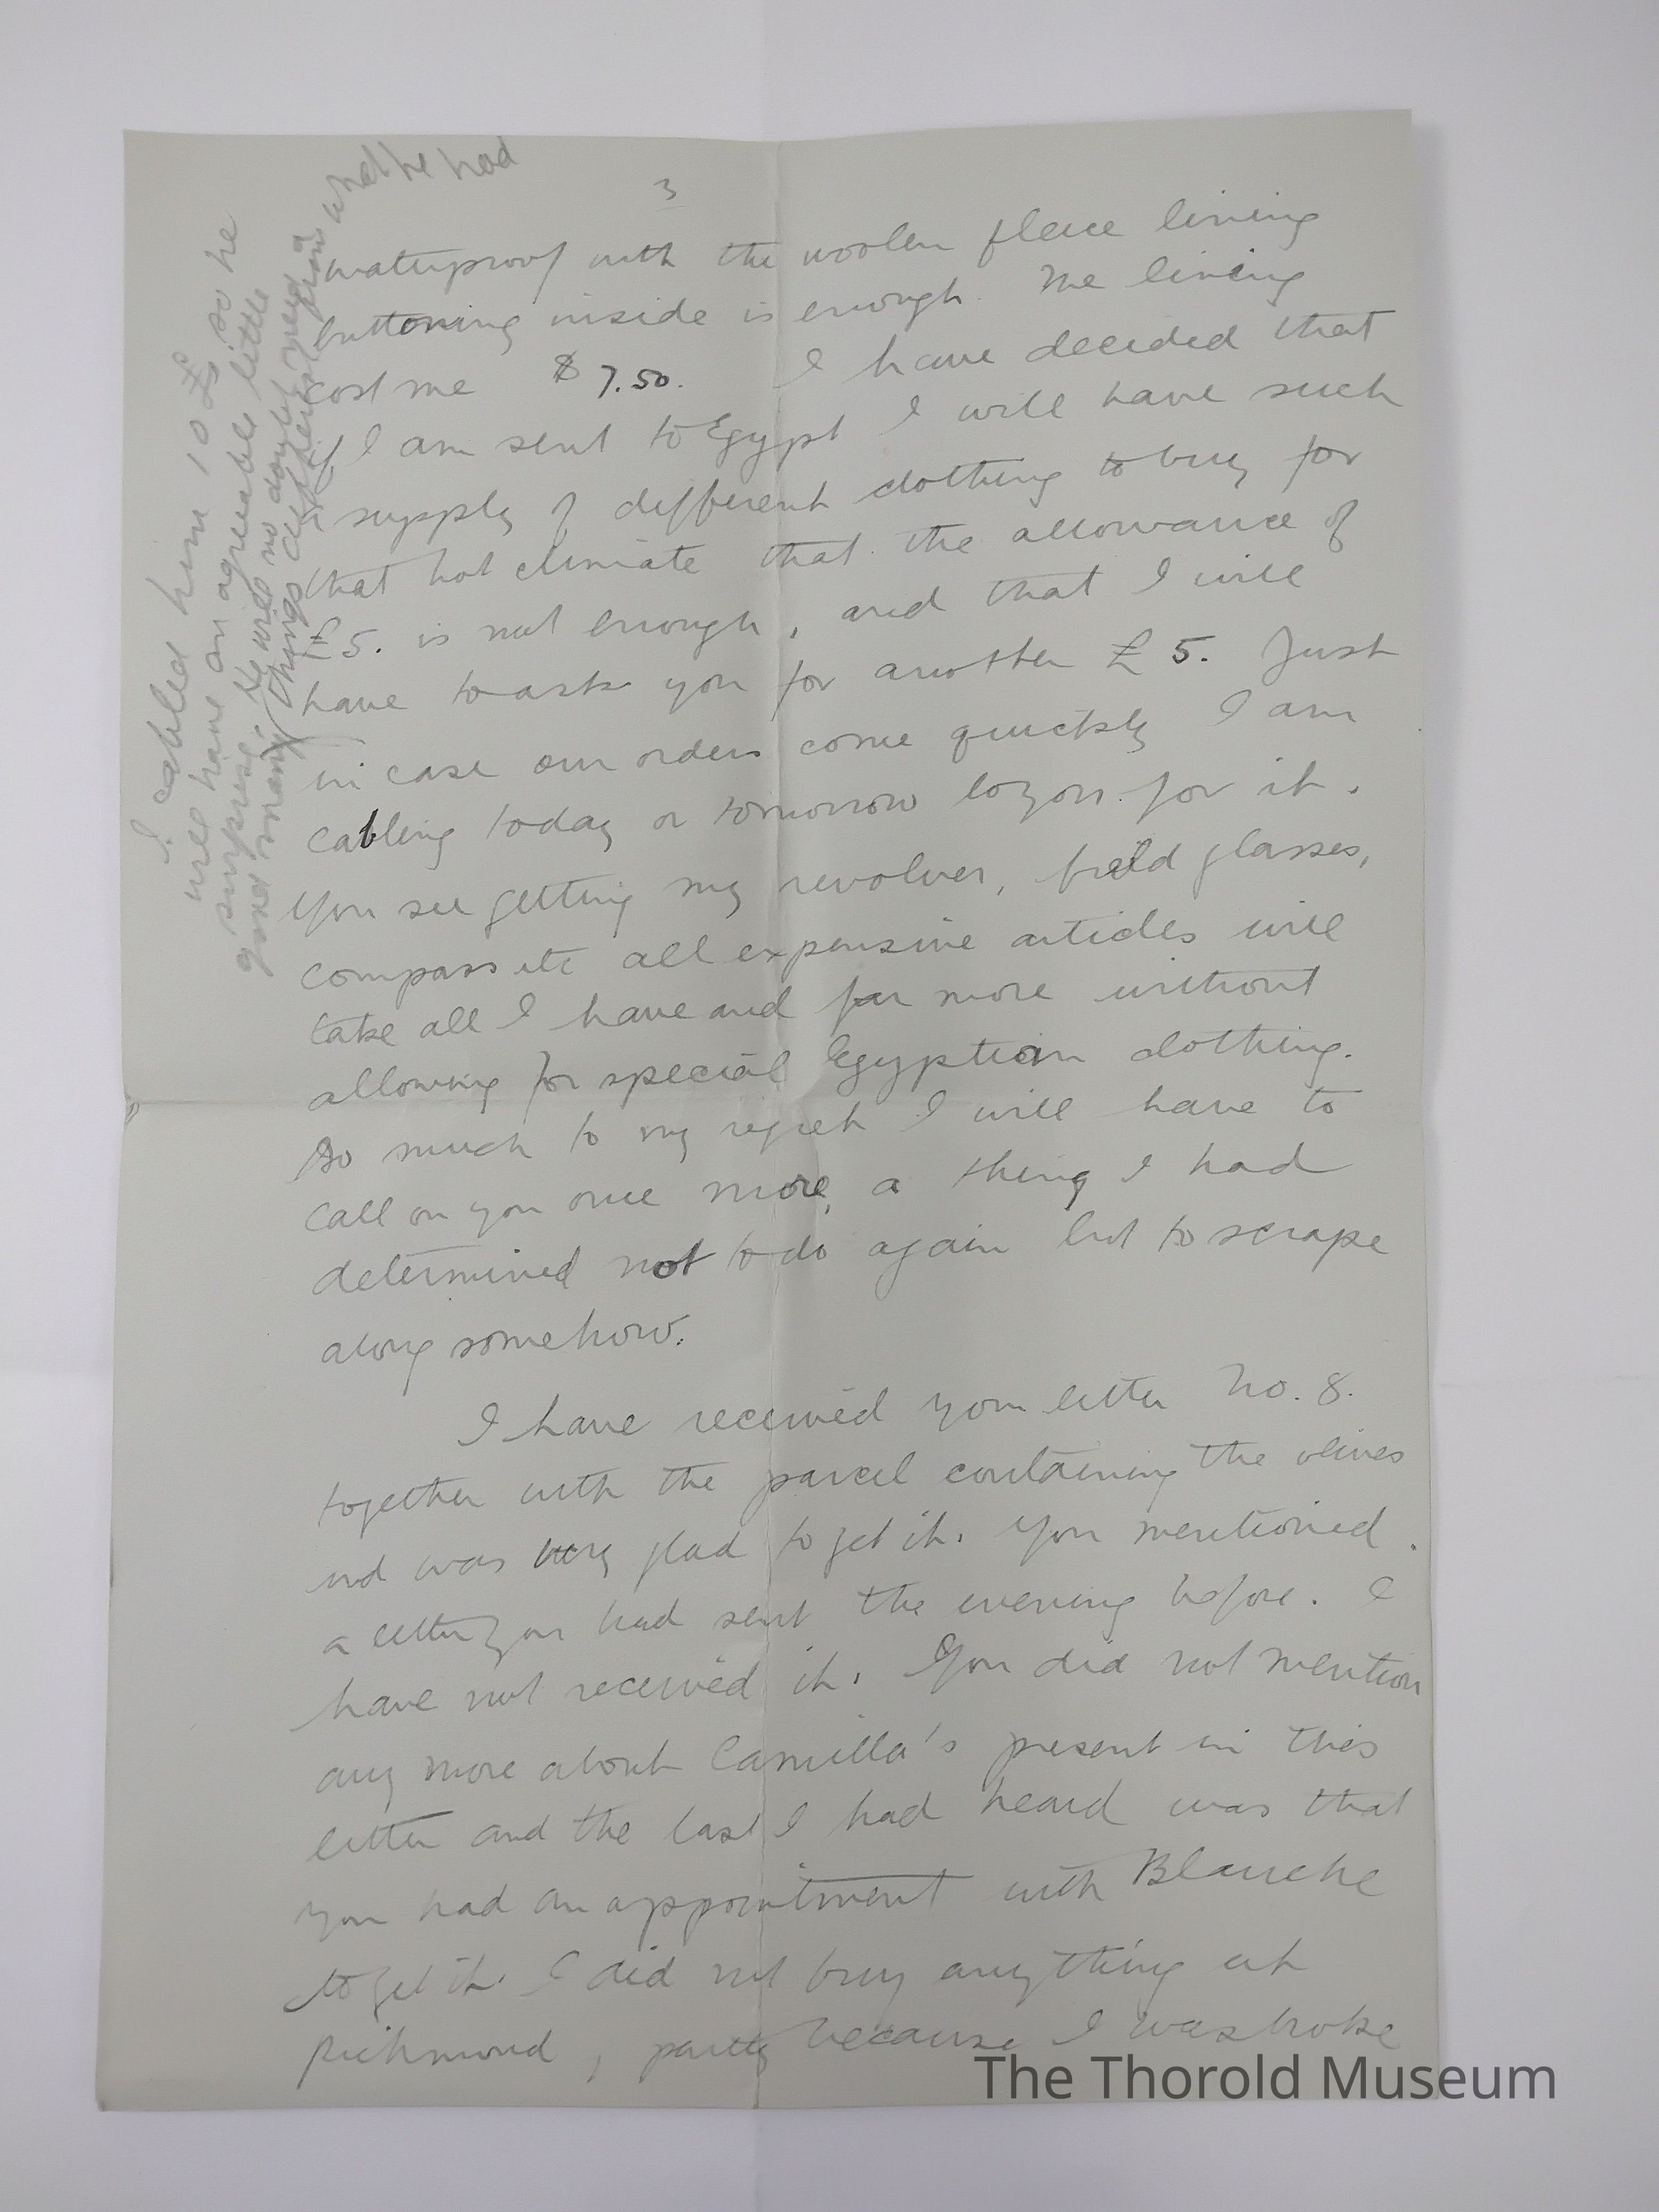 3
waterproof with the woolen fleece lining
buttoning inside is enough. The lining
cost me $7.50. I have decided that
if I am sent to Egypt I will have such
a supply of different clothing to buy for
that hot climate that the allowance of
£5. is not enough, and that I will
have to ask you for another £5. Just
in case our orders come quickly I am
cabling today or tomorrow to you for it.
You see getting my revolver, field glasses,
compass etc all expensive articles will
take all I have and far more without
allowing for special Egyptian clothing.
So much to my regret I will have to
call on you once more, a thing I had
determined not to do again but to scrape
along somehow.
I have received your letter No. 8.
together with the parcel containing the olives
and was very glad to get it. You mentioned
a letter you had sent the evening before. I
have not received it. You did not mention
any more about Camilla's present in this
letter and the last I had heard was that
you had an appointment with Blanche
to get it. I did not buy anything at
Richmond, partly because I was broke
I cabled him 10 £s so he
will have an agreeable little
surprise. He will no doubt need a
good many things different from
what he had
The Thorold Museum